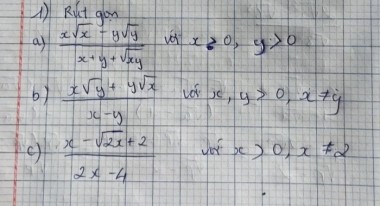 1) Rút gọn
a) (x√x - y√y)/(x+y+√xy) với x > 0, y > 0
b) (x√y + y√x)/(x-y) với x, y > 0, x ≠ y
c) (x - √2x + 2)/(2x - 4) với x > 0, x ≠ 2